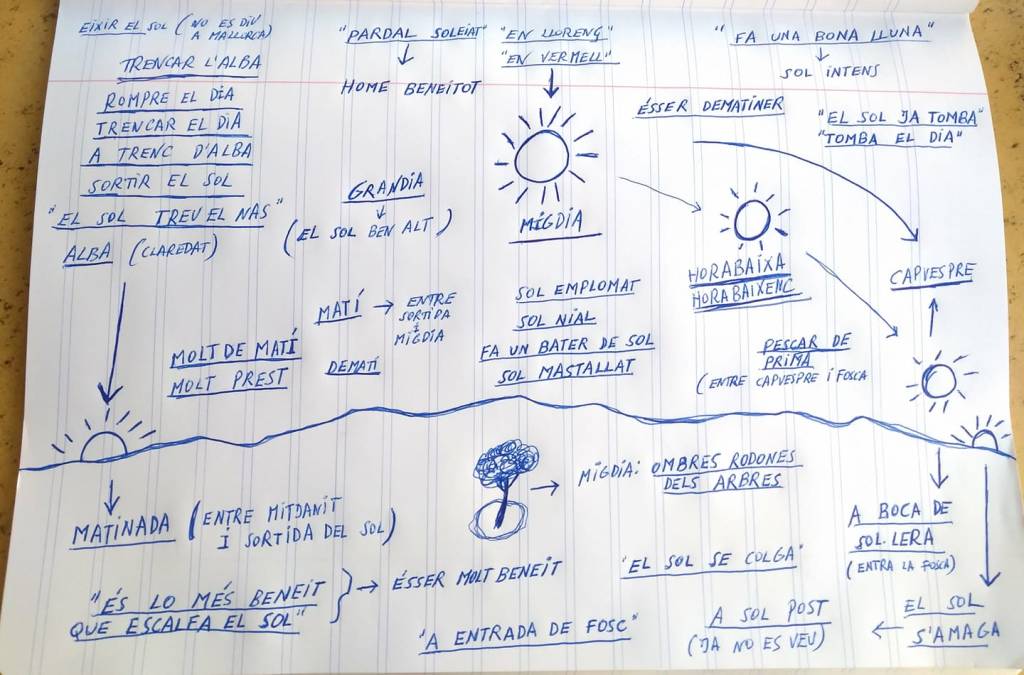 EIXIR EL SOL (NO ES DIU
A MALLORCA)
TRENCAR L'ALBA
ROMPRE EL DIA
TRENCAR EL DIA
A TRENC D'ALBA
SORTIR EL SOL
"EL SOL TREU EL NAS"
ALBA (CLAREDAT)
"PARDAL SOLEIAT"
HOME BENEITOT
"EN LLORENÇ"
"EN VERMELL"
"FA UNA BONA LLUNA"
SOL INTENS
ÉSSER DEMATINER
"EL SOL JA TOMBA"
"TOMBA EL DIA"
GRANDIA
(EL SOL BEN ALT)
MIGDIA
HORABAIXA
HORABAIXENC
CAPVESPRE
MATÍ → ENTRE
SORTIDA
I
MIGDIA
DEMATÍ
MOLT DE MATÍ
MOLT PREST
SOL EMPLOMAT
SOL NIAL
FA UN BATER DE SOL
SOL MASTALLAT
PESCAR DE
PRIMA
(ENTRE CAPVESPRE I FOSCA
MATINADA (ENTRE MITJANIT
I SORTIDA DEL SOL)
MIGDIA: OMBRES RODONES
DELS ARBRES
A BOCA DE
SOL·LERA
(ENTRA LA FOSCA)
"ÉS LO MÉS BENEIT
QUE ESCALFA EL SOL"
→ ÉSSER MOLT BENEIT
"EL SOL SE COLGA"
"A ENTRADA DE FOSC"
A SOL POST
(JA NO ES VEU)
EL SOL
S'AMAGA